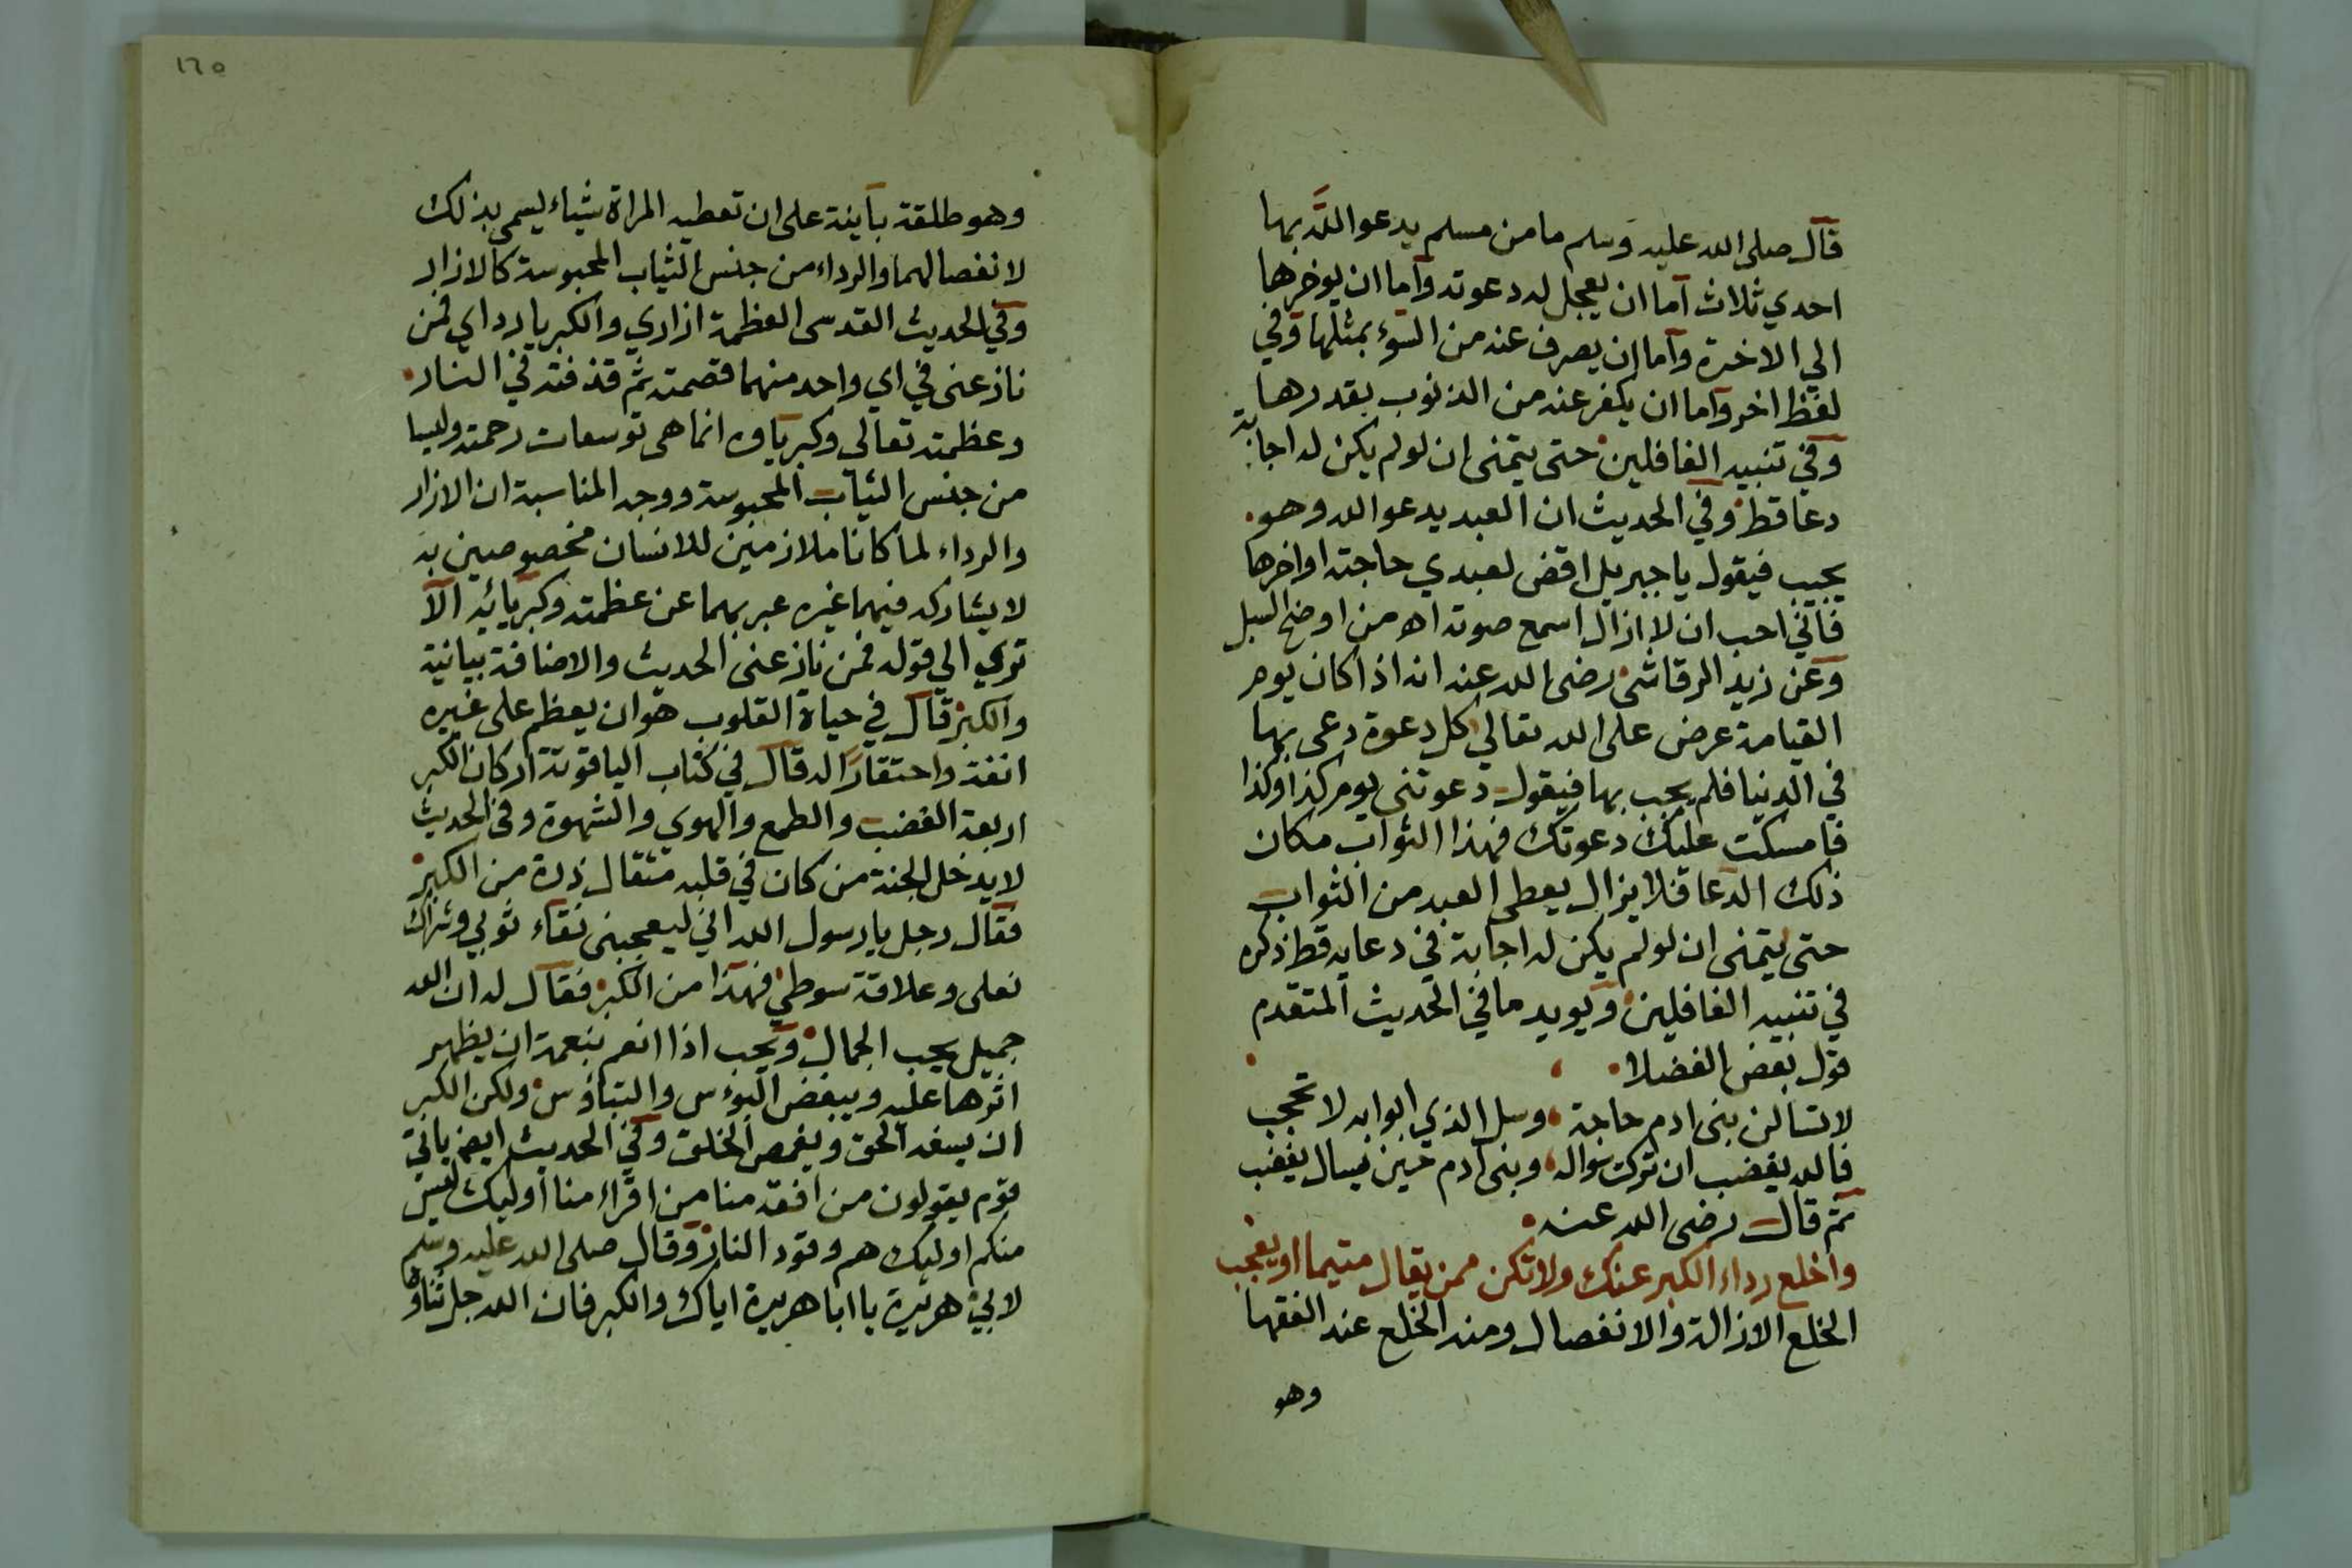 قال صلى الله عليه وسلم ما من مسلم يدعو الله بها
احدي ثلاث اما ان يعجل له دعوته واما ان يوخرها
الي الاخرة واما ان يصرف عنه من السوء بمثلها وفي
لفظ اخر واما ان يكفر عنه من الذنوب بقدرها
وفي تنبيه الغافلين حتى يتمنى ان لو لم يكن له اجابة
دعا قط وفي الحديث ان العبد يدعو الله وهو
يحبب فيقول يا جبريل اقض لعبدي حاجته اواخرها
فاني احب ان لا ازال اسمع صوته اه من اوضح السبل
وعن زيد الرقاشى رضى الله عنه انه اذا كان يوم
القيامة عرض على الله تعالي كل دعوة دعى بها
في الدنيا فلم يجب بها فيقول دعوتنى يوم كذا وكذا
فامسكت عليك دعوتك فهذا الثواب مكان
ذلك الدعا فلا يزال يعطى العبد من الثواب
حتى يتمنى ان لو لم يكن له اجابة في دعايه قط ذكره
في تنبيه الغافلين ويويد ما في الحديث المتقدم
قول بعض الفضلا
لا تسالن بنى ادم حاجة وسل الذي ابوابه لا تحجب
فالله يغضب ان تركت سواله وبنى ادم حين يسال يغضب
ثم قال رضى الله عنه
واخلع رداء الكبر عنك ولا تكن ممن يقال متيما او يعجب
الخلع الازالة والانفصال ومنه الخلع عند الفقها
وهو
١٦٥
وهو طلقة باينة على ان تعطيه المراة شياء ليسمى بذلك
لانفصالهما والرداء من جنس الثياب المحبوسة كالازار
وفي الحديث القدسى العظمة ازاري والكبريا رداي فمن
نازعنى في اي واحد منهما قصمته ثم قذفته في النار
وعظمته تعالى وكبرياوه انما هى توسعات رحمته وليسا
من جنس الثياب المحبوسة ووجه المناسبة ان الازار
والرداء لما كانا ملازمين للانسان مخصوصين به
لا يشاركه فيهما غيره عبر بهما عن عظمته وكبريائه الا
تري الي قوله فمن نازعنى الحديث والاضافة بيانية
والكبر قال في حياة القلوب هو ان يعظم على غيره
انفة واحتقارا له قال في كتاب الياقوتة اركان الكبر
اربعة الغضب والطمع والهوي والشهوة وفي الحديث
لا يدخل الجنة من كان في قلبه مثقال ذرة من الكبر
فقال رجل يا رسول الله اني ليعجبنى نقاء ثوبي وشراك
نعلى وعلاقة سوطي فهذا من الكبر فقال له ان الله
جميل يحب الجمال ويحب اذا انعم بنعمة ان يظهر
اثرها عليه ويبغض البوءس والتباوس ولكن الكبر
ان يسفه الحق ويغمص الخلق وفي الحديث ايض ياتي
قوم يقولون من افقه منا من اقراء منا اوليك ليس
منكم اوليك هم وقود النار وقال صلى الله عليه وسلم
لابي هريرة يا ابا هريرة اياك والكبر فان الله جل ثناوه